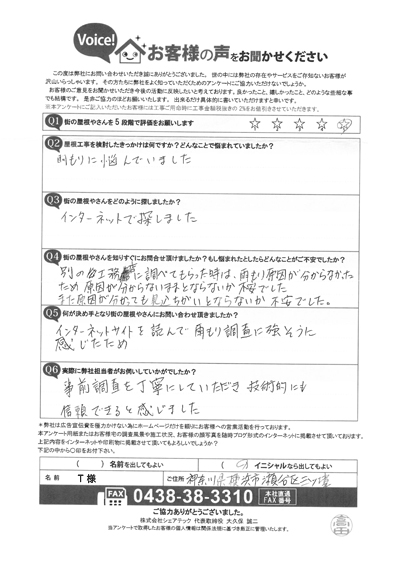 Voice!
お客様の声をお聞かせください
この度は弊社にお問い合わせいただき誠にありがとうございました。世の中には弊社の存在やサービスをご存知ないお客様が
沢山いらっしゃいます。その方たちに弊社をよく知っていただくためのアンケートにご協力いただけないでしょうか。
お客様のご意見をお聞かせいただき今後の活動に反映したいと考えております。良かったこと、嬉しかったこと、どのような些細な事
でも結構です。是非ご協力のほどお願いいたします。出来るだけ具体的に書いていただけますと幸いです。
※本アンケートにご記入いただいたお客様には工事ご用命時に工事金額税抜きの2%をお値引きさせていただきます。
Q1 街の屋根やさんを5段階で評価をお願いします ☆ ☆ ☆ ☆ ☆
Q2 屋根工事を検討したきっかけは何ですか?どんなことで悩まれていましたか?
雨もりに悩んでいました
Q3 街の屋根やさんをどのように探しましたか?
インターネットで探しました
Q4 街の屋根やさんを知りすぐにお問合せ頂けましたか?もし悩まれたとしたらどんなことがご不安でしたか?
別の 工務 に調べてもらった時は、雨もり原因が分からなかった
ため原因が分からないままとならないか不安でした
また原因が分かっても見込ちがいとならないか不安でした。
Q5 何が決め手となり街の屋根やさんにお問い合わせ頂きましたか?
インターネットサイトを読んで雨もり調査に強そうに
感じたため
Q6 実際に弊社担当者がお伺いしていかがでしたか?
事前調査を丁寧にしていただき技術的にも
信頼できると感じました
＊弊社は広告宣伝費を極力かけない為にホームページだけを頼りにお客様への営業活動を行っております。
本アンケート用紙またはお客様宅の調査風景や施工状況、お客様の顔写真を随時ブログ形式のインターネットに掲載させて頂いております。
上記内容をインターネットや印刷物に掲載させて頂いてもよろしいでしょうか?
下記の中から〇印をお付け下さい。
( )名前を出してもよい (○)イニシャルなら出してもよい
名前 T様 ご住所 神奈川県横浜市瀬谷区三ツ境
FAX 0438-38-3310 本社直通 FAX番号
ご協力ありがとうございました。
株式会社シェアテック 代表取締役 大久保 誠二
当アンケートで取得したお客様の個人情報は関係法規に基づき厳正に管理いたします。